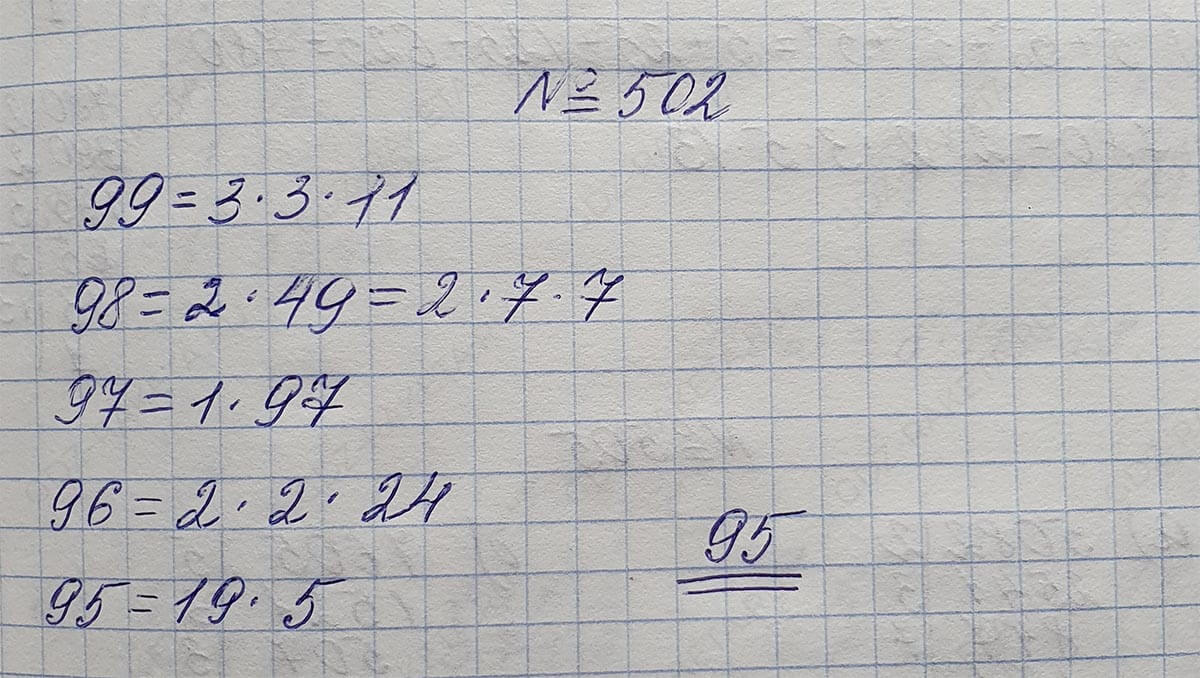 № 502
99 = 3 · 3 · 11
98 = 2 · 49 = 2 · 7 · 7
97 = 1 · 97
96 = 2 · 2 · 24
95 = 19 · 5
95